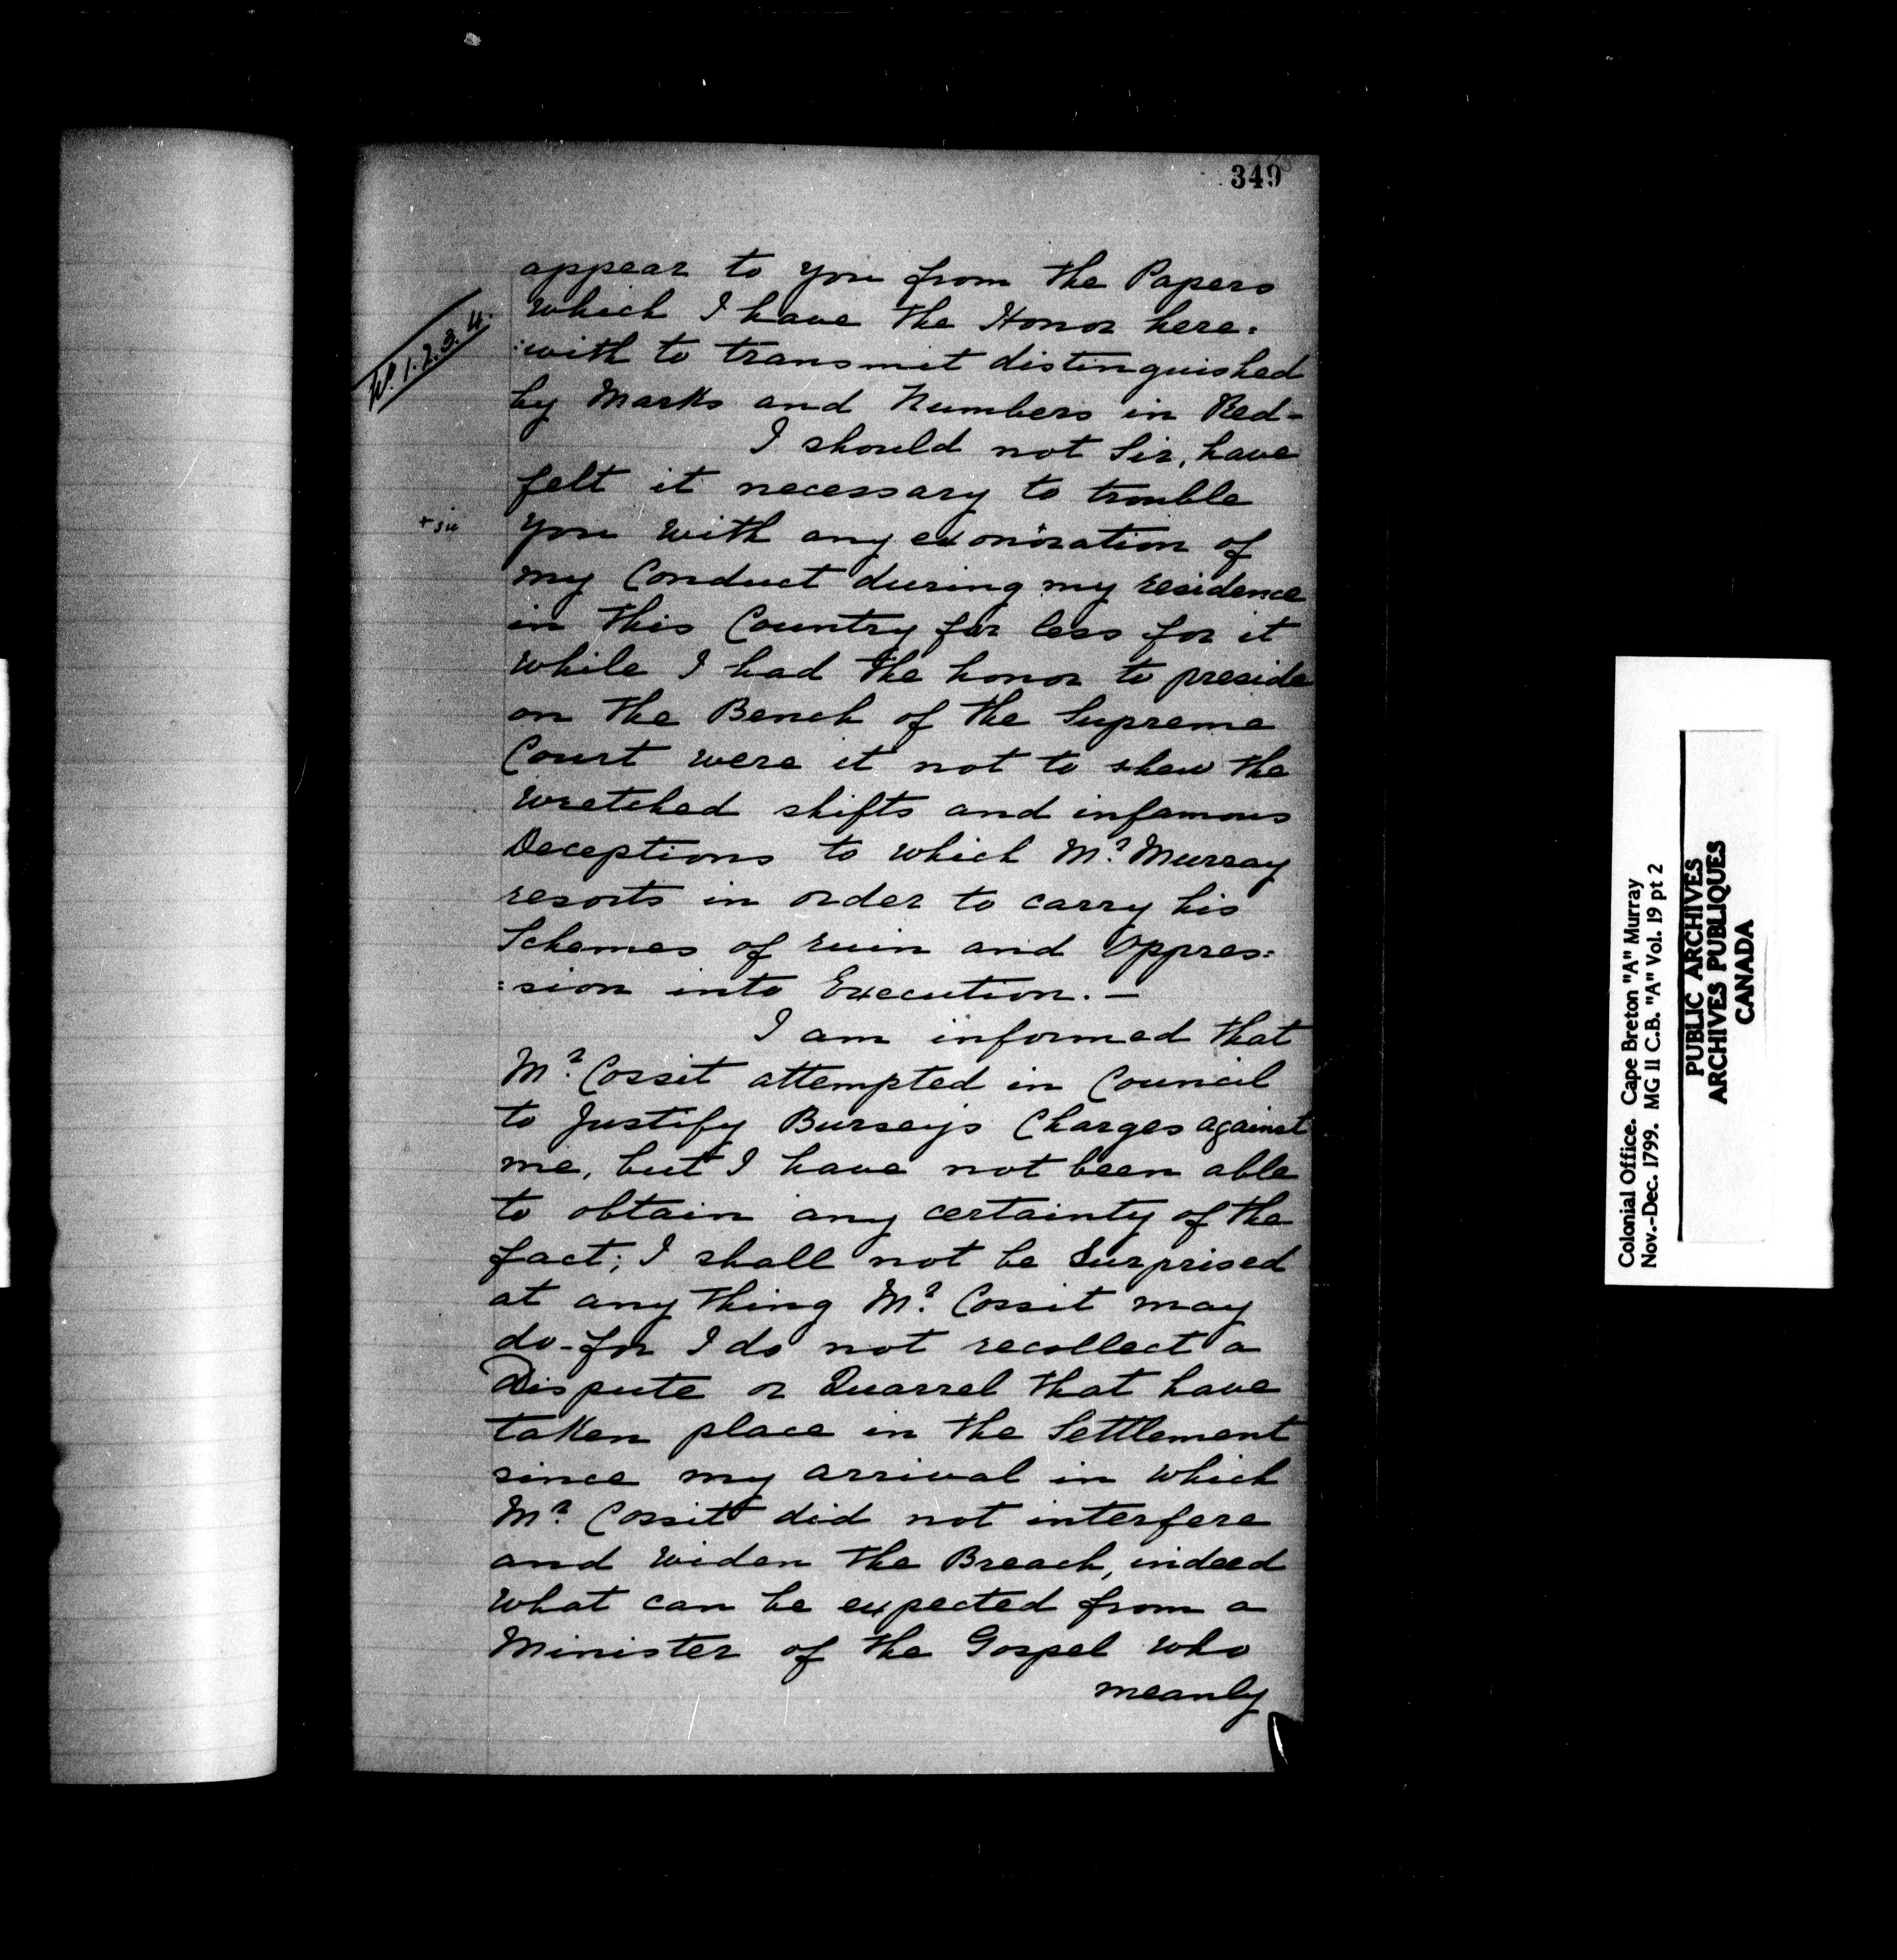 349
appear to you from the Papers
which I have the Honor here=
:with to transmit distinguished
by Marks and Numbers in Red-
No. 1.2.3.4.
I should not Sir, have
felt it necessary to trouble
+sic
you with any exonoration of
my Conduct during my residence
in this Country far less for it
while I had the honor to preside
on the Bench of the Supreme
Court were it not to shew the
wretched shifts and infamous
Deceptions to which Mr. Murray
resorts in order to carry his
Schemes of ruin and Oppres=
=sion into Execution. —
I am informed that
Mr. Cossit attempted in Council
to Justify Bursey's Charges against
me, but I have not been able
to obtain any certainty of the
fact; I shall not be Surprised
at any thing Mr. Cossit may
do - for I do not recollect a
Dispute or Quarrel that have
taken place in the Settlement
since my arrival in which
Mr. Cossit did not interfere
and widen the Breach, indeed
what can be expected from a
Minister of the Gospel who
meanly
Colonial Office. Cape Breton "A" Murray
Nov.-Dec. 1799. MG 11 C.B. "A" Vol. 19 pt 2
PUBLIC ARCHIVES
ARCHIVES PUBLIQUES
CANADA